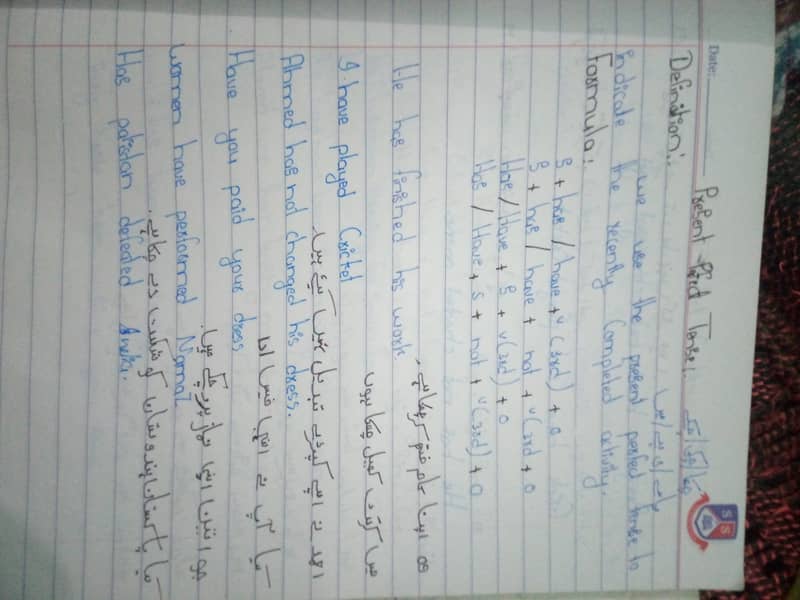 Date:
Present Prfect Tense:
چکا/چکی/چکے
Definition:
we use the present perfect tense to
indicate the recently Completed activity.
Formula:
S + has / have + v (3rd) + o
S + has / have + not + v (3rd + o
Has / Have + S + v (3rd) + o
Has / Have + S + not + v (3rd) + o
وہ اپنا کام ختم کر چکا ہے۔
He has finished his work
میں کرکٹ کھیل چکا ہوں
I have played Cricket
احمد نے اپنے کپڑے تبدیل نہیں کیے ہیں
Ahmed has not changed his dress.
کیا آپ نے اپنی فیس ادا
Have you paid your dress
خواتین اپنا نماز پڑھ چکے ہیں
women have performed Namaz
کیا پاکستان ہندوستان کو شکست دے چکا ہے۔
Has pakistan defeated